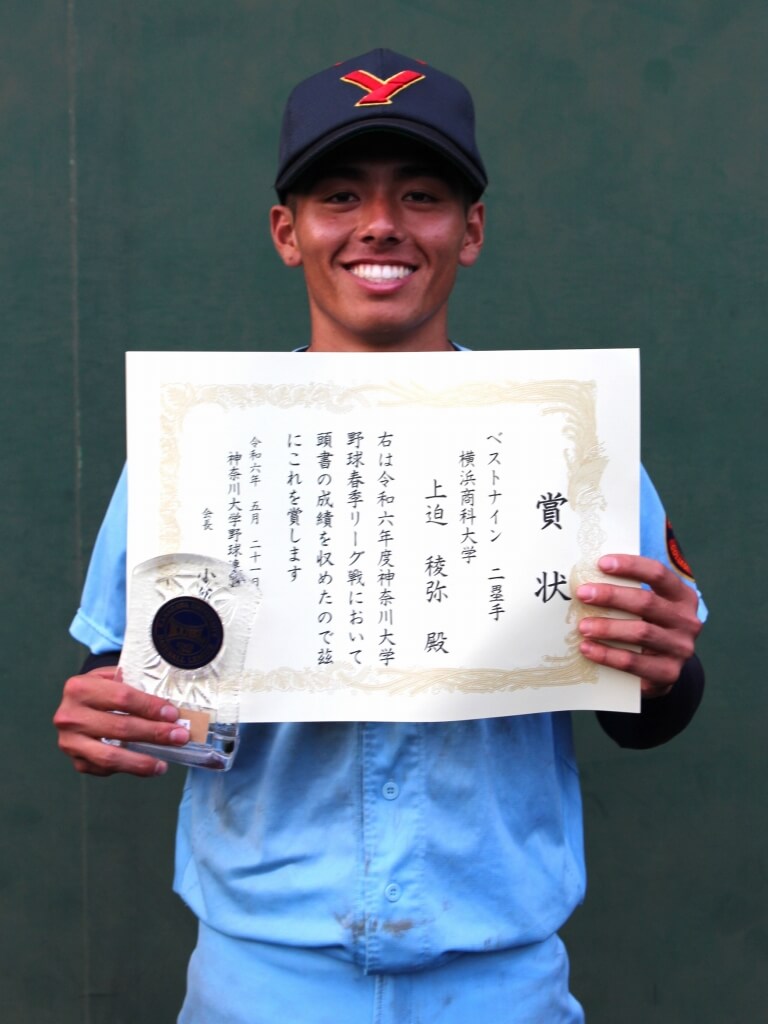 Y
賞状
ベストナイン 二塁手
横浜商科大学
上迫 稜弥 殿
右は令和六年度神奈川大学
野球春季リーグ戦において
頭書の成績を収めたので茲
にこれを賞します
令和六年 五月 二十一日
神奈川大学野球連盟
会長